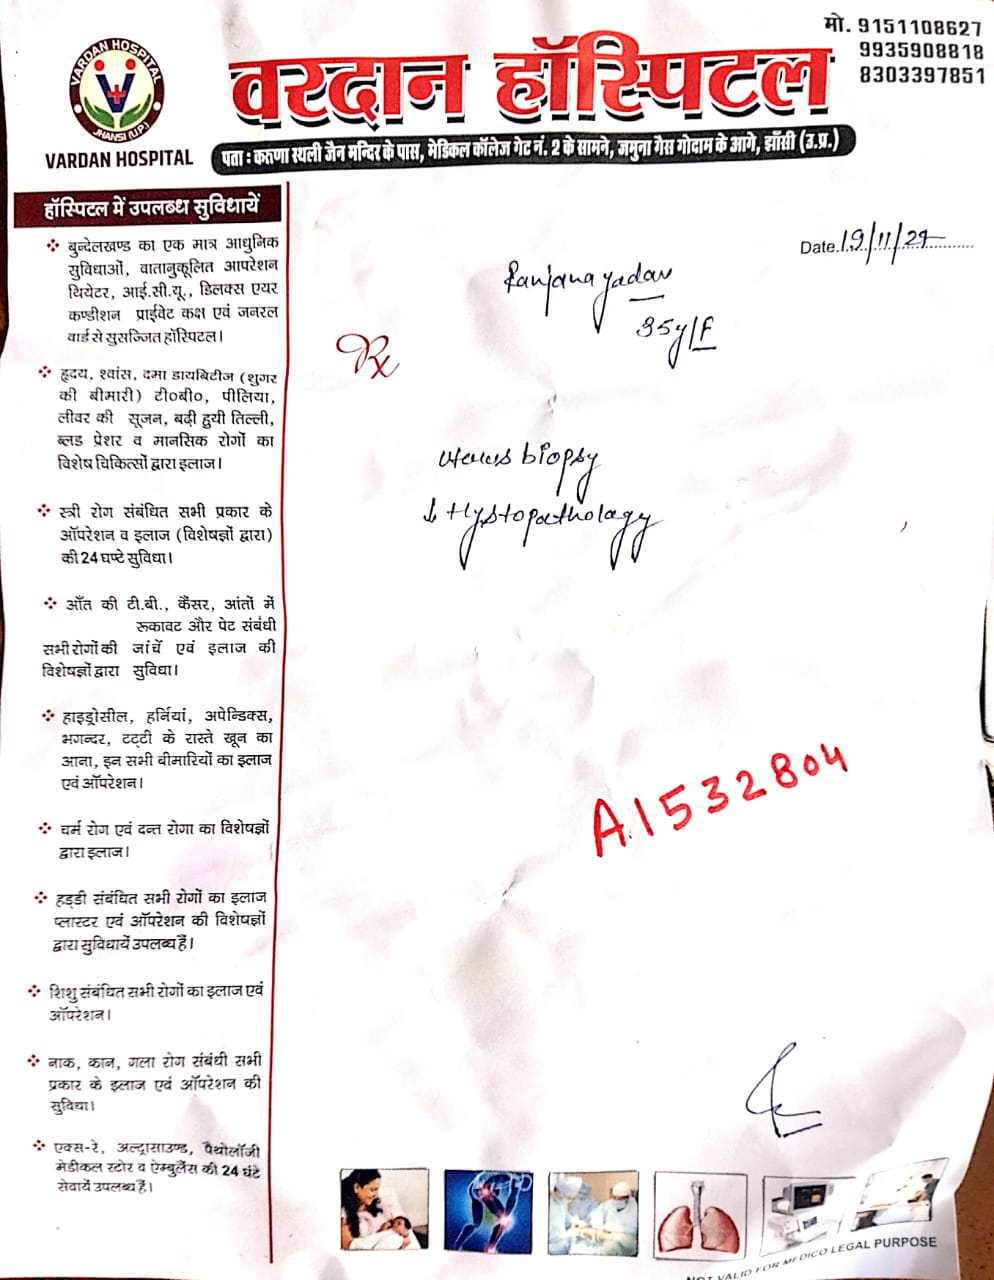 मो. 9151108627
9935908818
8303397851
VARDAN HOSPITAL
JHANSI (U.P.)
VARDAN HOSPITAL
वरदान हॉस्पिटल
पता : करुणा स्थली जैन मन्दिर के पास, मेडिकल कॉलेज गेट नं. 2 के सामने, जमुना गैस गोदाम के आगे, झाँसी (उ.प्र.)
हॉस्पिटल में उपलब्ध सुविधायें
बुन्देलखण्ड का एक मात्र आधुनिक
सुविधाओं, वातानुकूलित आपरेशन
थियेटर, आई.सी.यू., डिलक्स एयर
कण्डीशन प्राईवेट कक्ष एवं जनरल
वार्ड से सुसज्जित हॉस्पिटल।
हृदय, श्वांस, दमा डायबिटीज (शुगर
की बीमारी) टी०बी०, पीलिया,
लीवर की सूजन, बढ़ी हुयी तिल्ली,
ब्लड प्रेशर व मानसिक रोगों का
विशेष चिकित्सों द्वारा इलाज।
स्त्री रोग संबंधित सभी प्रकार के
ऑपरेशन व इलाज (विशेषज्ञों द्वारा)
की 24 घण्टे सुविधा।
आँत की टी.बी., कैंसर, आंतों में
रूकावट और पेट संबंधी
सभी रोगों की जांचें एवं इलाज की
विशेषज्ञों द्वारा सुविधा।
हाइड्रोसील, हर्नियां, अपेन्डिक्स,
भगन्दर, टट्टी के रास्ते खून का
आना, इन सभी बीमारियों का इलाज
एवं ऑपरेशन।
चर्म रोग एवं दन्त रोगा का विशेषज्ञों
द्वारा इलाज।
हड्डी संबंधित सभी रोगों का इलाज
प्लास्टर एवं ऑपरेशन की विशेषज्ञों
द्वारा सुविधायें उपलब्ध हैं।
शिशु संबंधित सभी रोगों का इलाज एवं
ऑपरेशन।
नाक, कान, गला रोग संबंधी सभी
प्रकार के इलाज एवं ऑपरेशन की
सुविधा।
एक्स-रे, अल्ट्रासाउण्ड, पैथोलॉजी
मेडीकल स्टोर व ऐम्बुलैंस की 24 घंटे
सेवायें उपलब्ध है।
Date. 19/11/24
Ranjana yadav
35y/F
Rx
uterus biopsy
↓ Hystopathology
A1532804
NOT VALID FOR MEDICO LEGAL PURPOSE